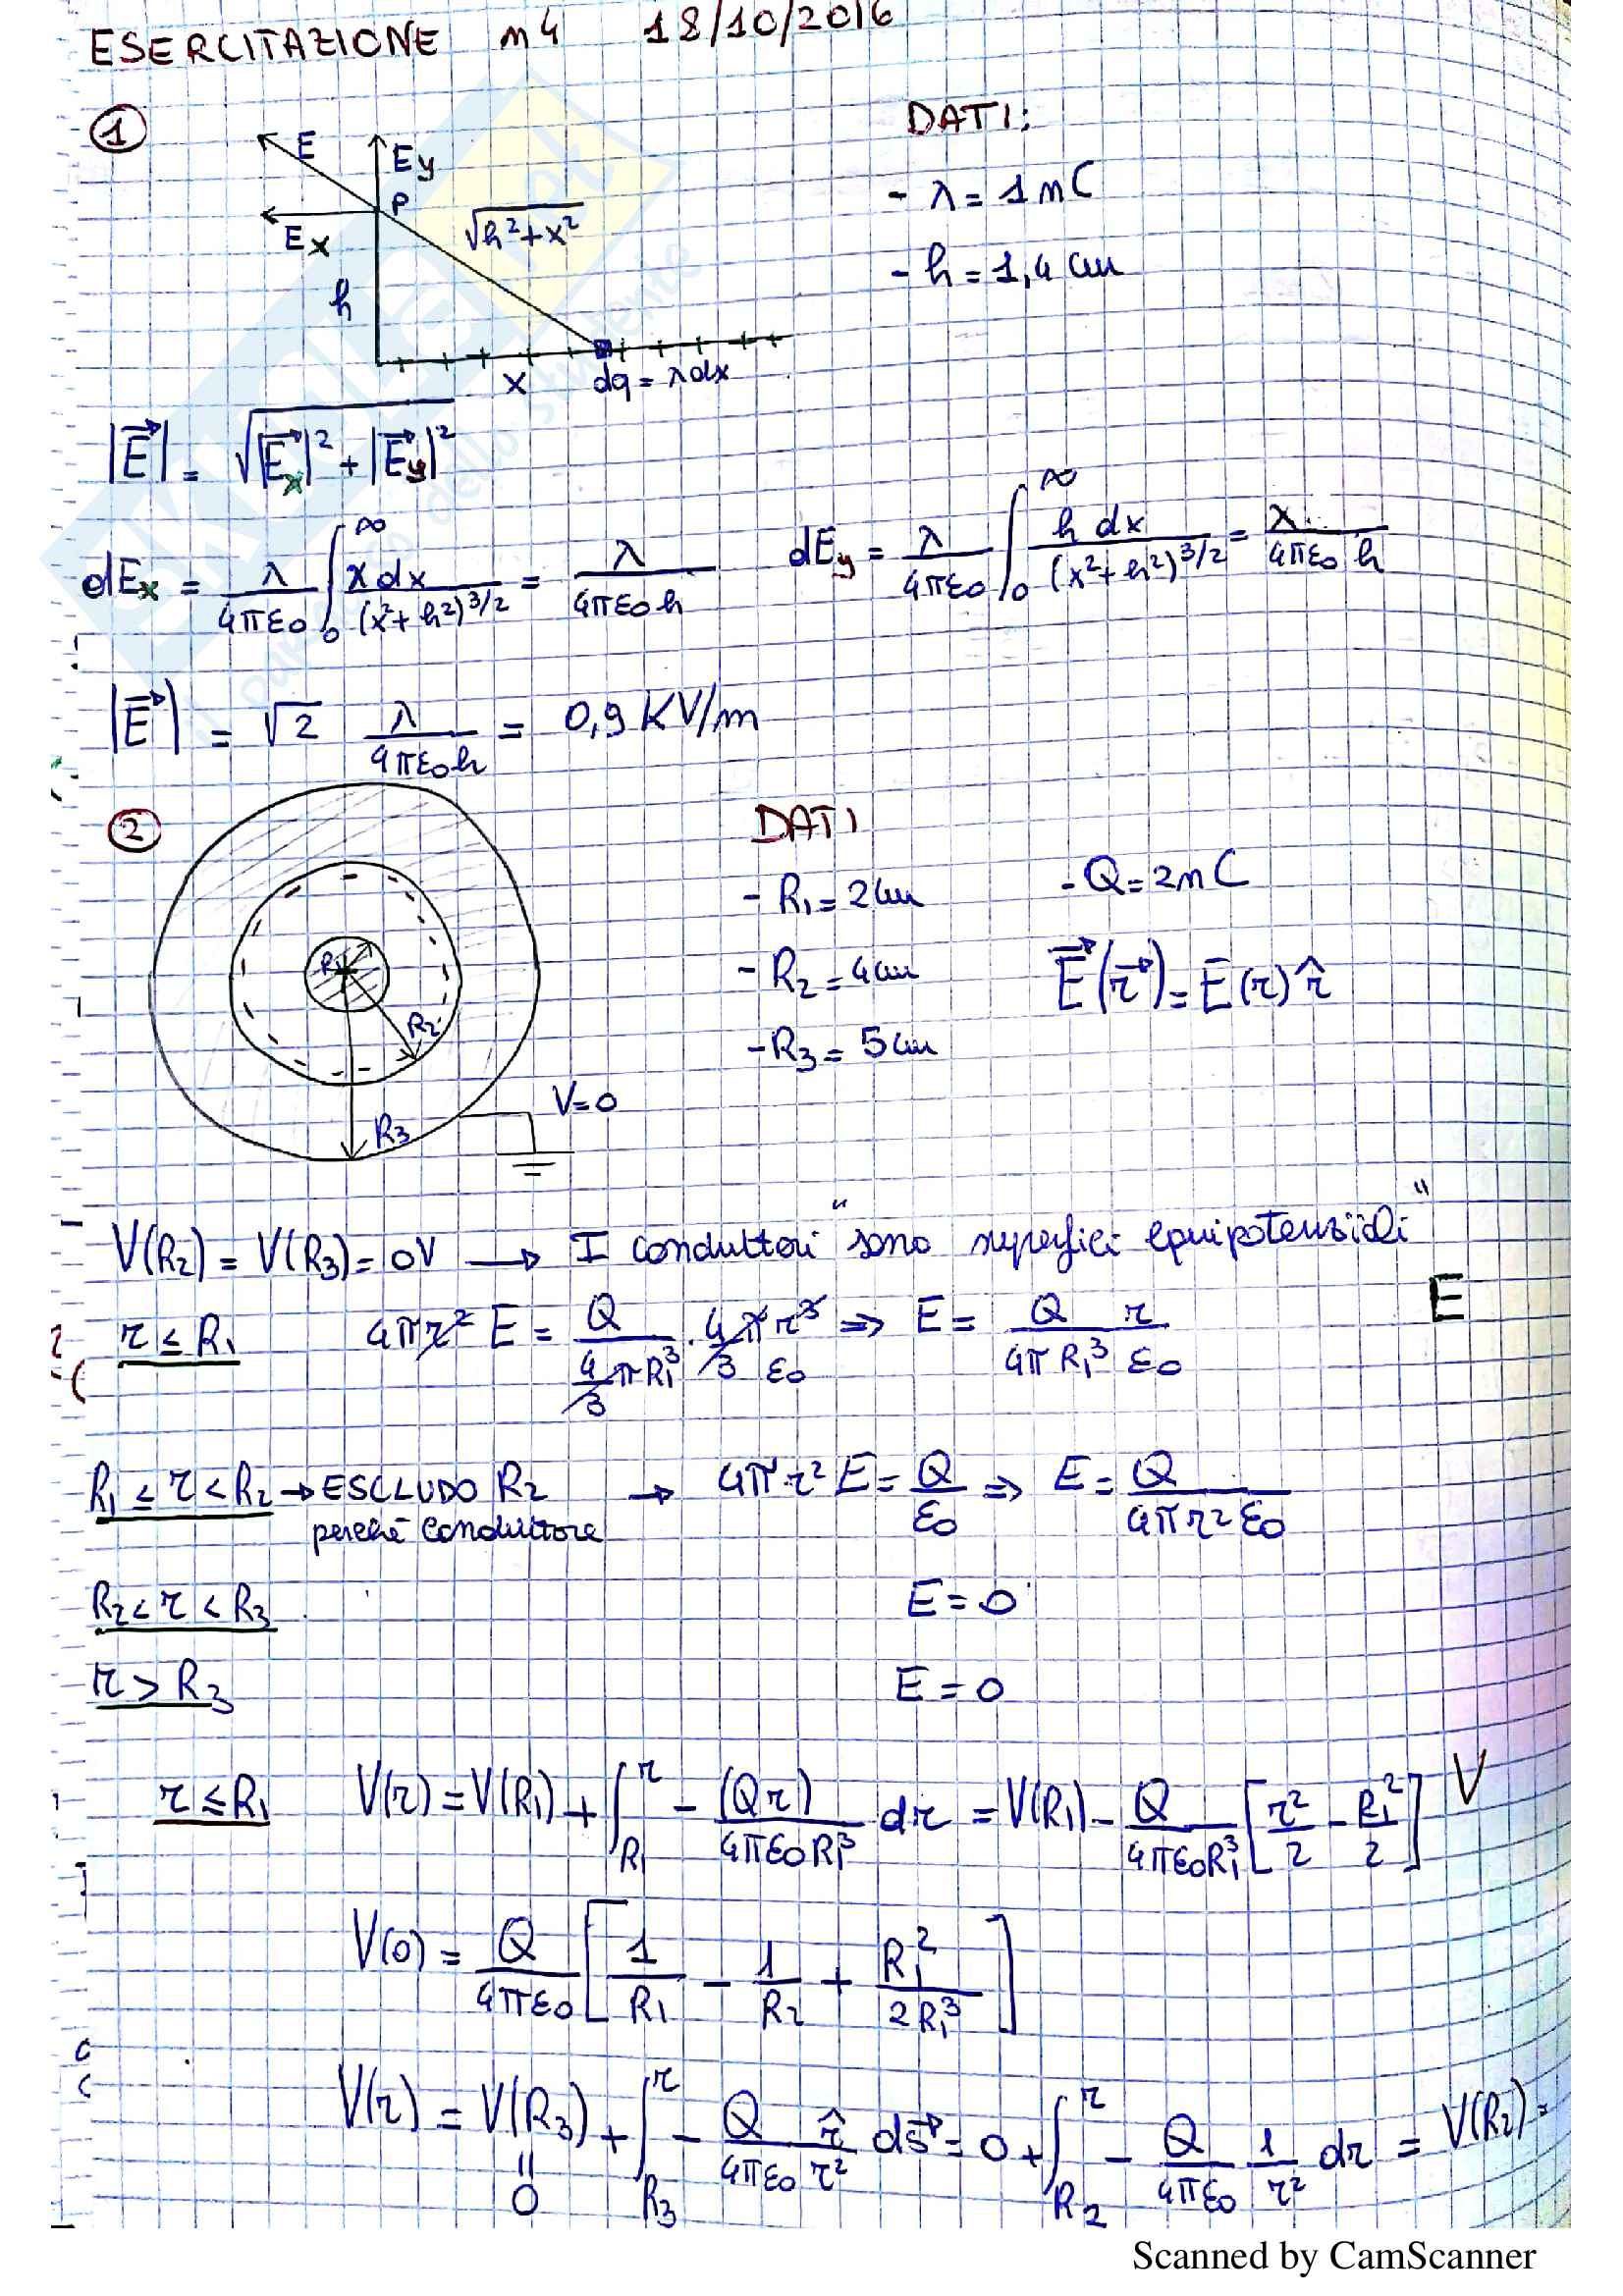 ESERCITAZIONE n4 18/10/2016
① DATI:
E Ey
P
Ex √h²+x²
h
x dq = λdx
- λ = 1 nC
- h = 1,4 cm
|E⃗| = √|E⃗x|² + |E⃗y|²
dEx = λ/4πε0 ∫0^∞ x dx/(x²+h²)^3/2 = λ/4πε0 h dEy = λ/4πε0 ∫0^∞ h dx/(x²+h²)^3/2 = λ/4πε0 h
|E⃗| = √2 λ/4πε0h = 0,9 KV/m
② DATI
- R1 = 2cm - Q = 2nC
- R2 = 4cm E⃗(r⃗) = E(r) r̂
- R3 = 5cm
R1
R2
R3
V=0
V(R2) = V(R3) = 0V → I conduttori "sono superfici equipotenziali"
E
r ≤ R1 4πr² E = Q/(4/3 πR1³) · 4/3 π r³/ε0 ⇒ E = Q/4πR1³ r/ε0
R1 ≤ r < R2 → ESCLUDO R2 → 4π r² E = Q/ε0 ⇒ E = Q/4πr²ε0
perchè conduttore
R2 < r < R3 E = 0
r > R3 E = 0
r ≤ R1 V(r) = V(R1) + ∫R1^r - (Qr)/4πε0R1³ dr = V(R1) - Q/4πε0R1³ [r²/2 - R1²/2] V
V(0) = Q/4πε0 [1/R1 - 1/R2 + R1²/2R1³]
V(r) = V(R3) + ∫R3^r - Q/4πε0 r̂/r² ds⃗ = 0 + ∫R2^r - Q/4πε0 1/r² dr = V(R2) =
"
0
Scanned by CamScanner